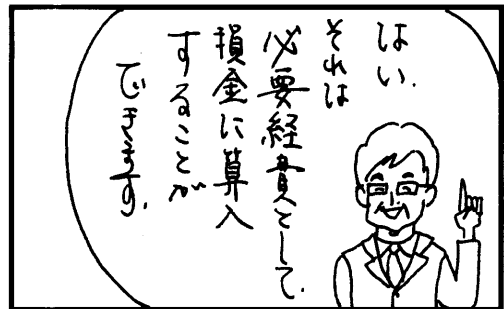 はい.
それは
必要経費として.
損金に算入
することが
できます.